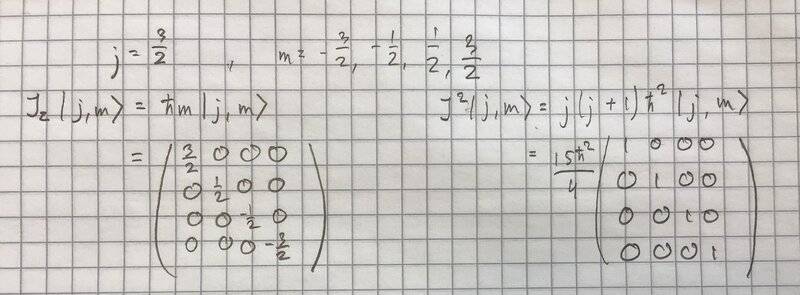 j = 3/2 , m = -3/2, -1/2, 1/2, 3/2
J_z |j,m⟩ = ħm |j,m⟩
= ( 3/2 0 0 0
0 1/2 0 0
0 0 -1/2 0
0 0 0 -3/2 )
J² |j,m⟩ = j(j+1)ħ² |j,m⟩
= 15ħ²/4 ( 1 0 0 0
0 1 0 0
0 0 1 0
0 0 0 1 )